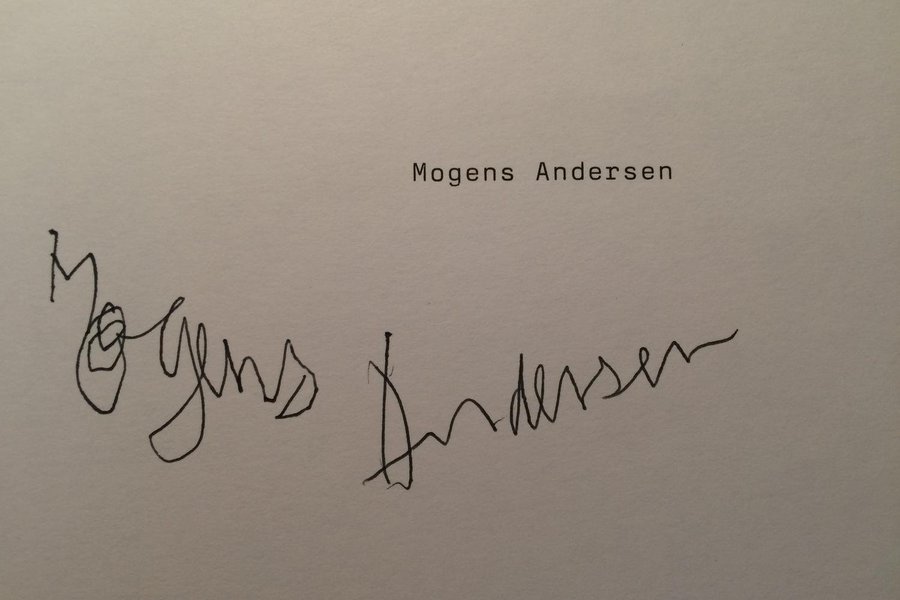 Mogens Andersen
Mogens Andersen